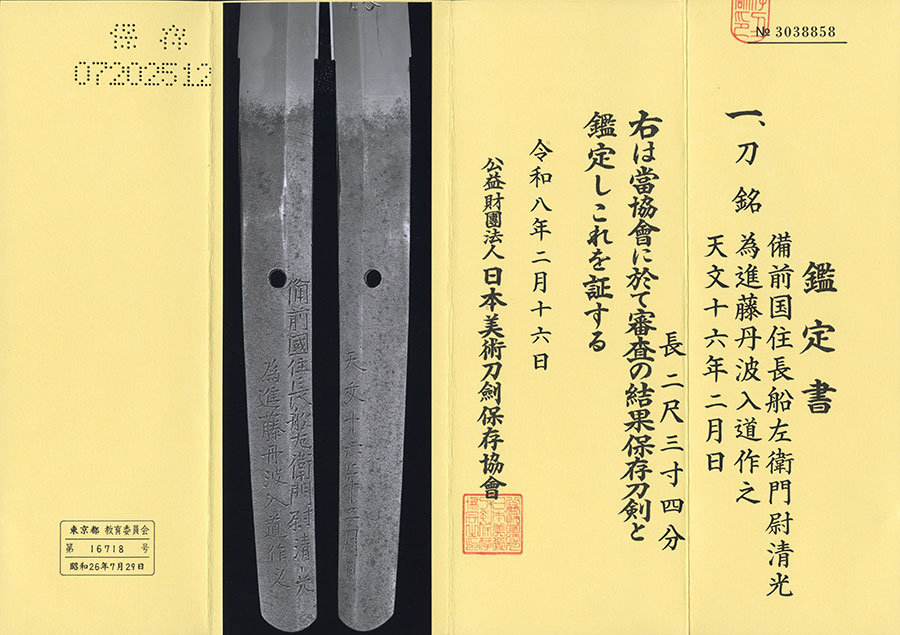 № 3038858
鑑定書
一、刀 銘 備前国住長船左衛門尉清光
為進藤丹波入道作之
天文十六年二月日
長二尺三寸四分
右は當協會に於て審査の結果保存刀剣と
鑑定しこれを証する
令和八年二月十六日
公益財團法人日本美術刀劍保存協會
天文十六年二月日
備前國住長船左衛門尉清光
為進藤丹波入道作之
保存
07202512
東京都 教育委員会
第 16718 号
昭和26年7月29日